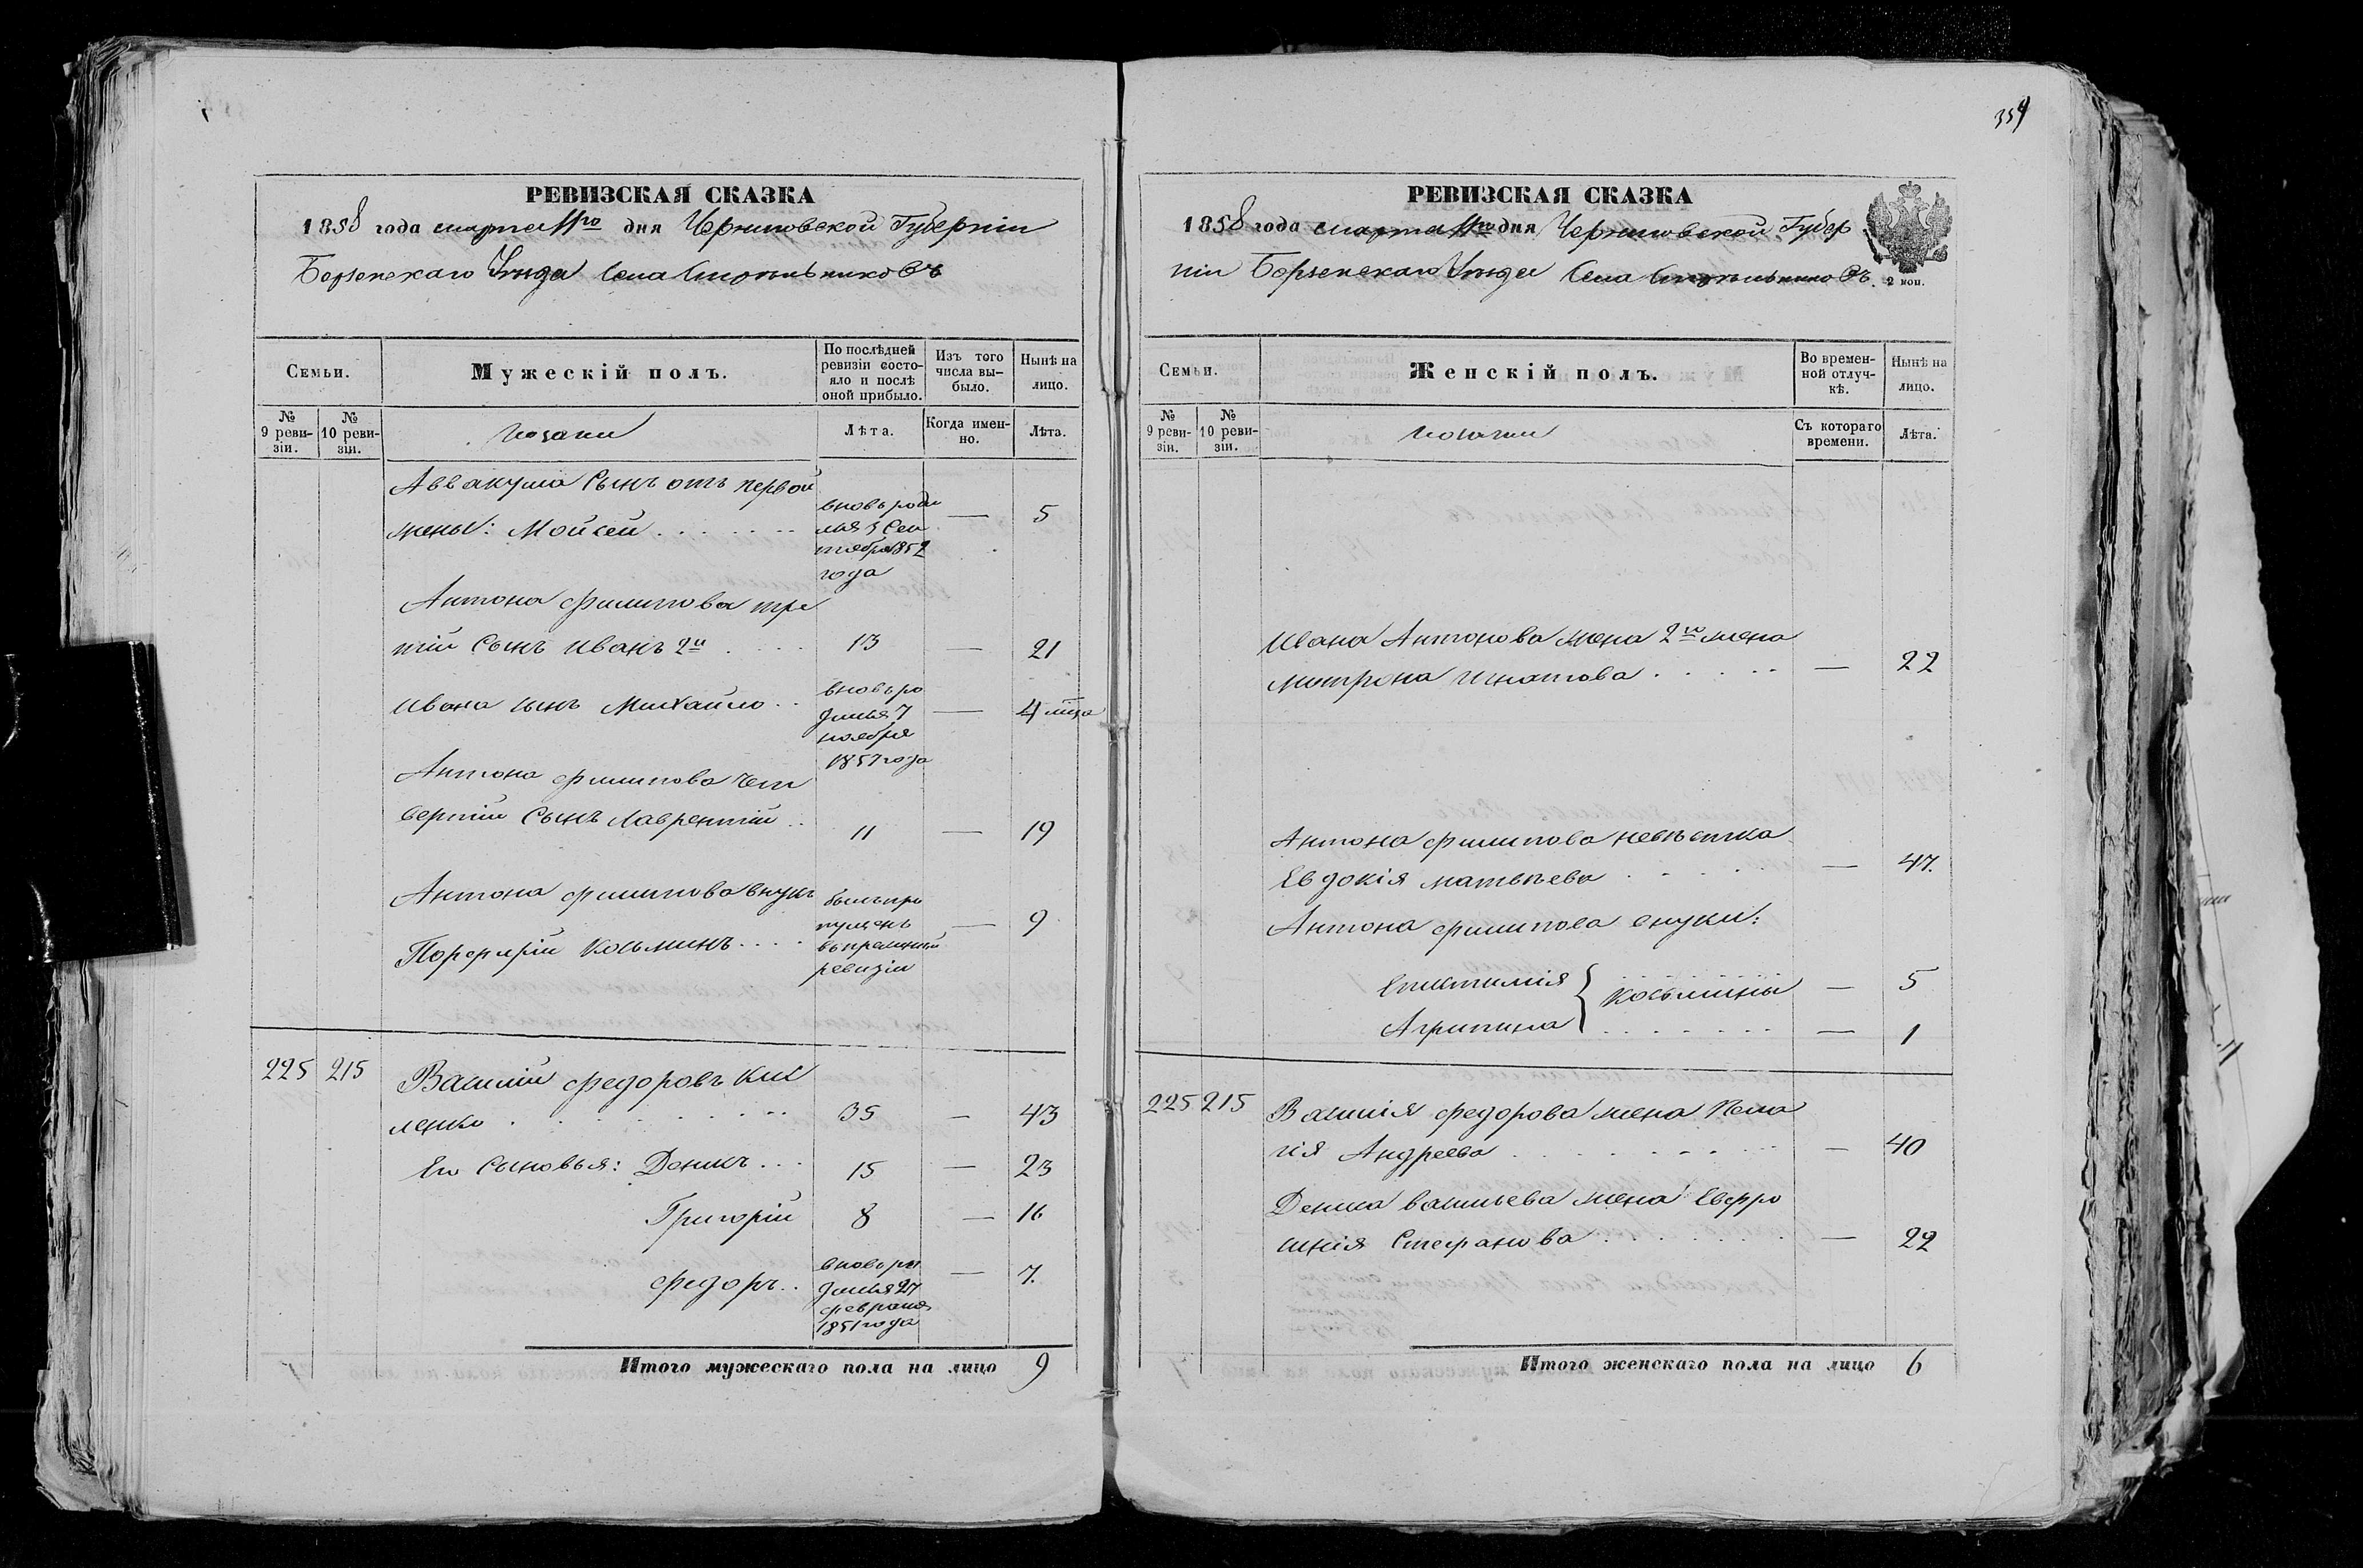 354
РЕВИЗСКАЯ СКАЗКА
1858 года марта 11го дня Черниговской Губерніи
Борзенскаго Уѣзда Села Стрѣльниковъ
Семьи.
Мужескій полъ.
По послѣдней ревизіи состояло и послѣ оной прибыло.
Изъ того числа выбыло.
Нынѣ на лицо.
№ 9 ревизіи.
№ 10 ревизіи.
козаки
Лѣта.
Когда именно.
Лѣта.
Аввакума Сынъ отъ первой
жены: Мойсей . . . . . . . вновь роди — 5
лся 5 Сен
тября 1852
года
Антона Филипова тре
тій Сынъ Иванъ 2й . . . . 13 — 21
Ивана сынъ Михайло . . вновь ро — 4 мца
дился 7
ноября
1857 года
Антона Филипова чет
вертій Сынъ Лаврентій . . 11 — 19
Антона Филипова внукъ былъ про
Порфирій Козьминъ . . . . пущенъ — 9
въ прежней
ревизіи
225 215 Василій Федоровъ Кис
ленко . . . . . . 35 — 43
Его Сыновья: Денисъ . . . 15 — 23
Григорій 8 — 16
Федоръ . . вновь ро — 7.
дился 27
февраля
1851 года
Итого мужескаго пола на лицо 9
РЕВИЗСКАЯ СКАЗКА
1858 года марта 11го дня Черниговской Губер
ніи Борзенскаго Уѣзда Села Стрѣльниковъ
2 коп.
Семьи.
Женскій полъ.
Во временной отлучкѣ.
Нынѣ на лицо.
№ 9 ревизіи.
№ 10 ревизіи.
козачки
Съ котораго времени.
Лѣта.
Ивана Антонова жена 2го жена
Митрона Игнатова . . . . . — 22
Антона Филипова невѣстка
Евдокія Матвѣева . . . . — 47.
Антона Филипова внуки:
Епистимія } Козьмины — 5
Агрипина . . . . . . . — 1
225 215 Василія Федорова жена Пела
гія Андреева . . . . . . . — 40
Дениса Васильева жена Евфро
синія Стефанова . . . . . . . — 22
Итого женскаго пола на лицо 6